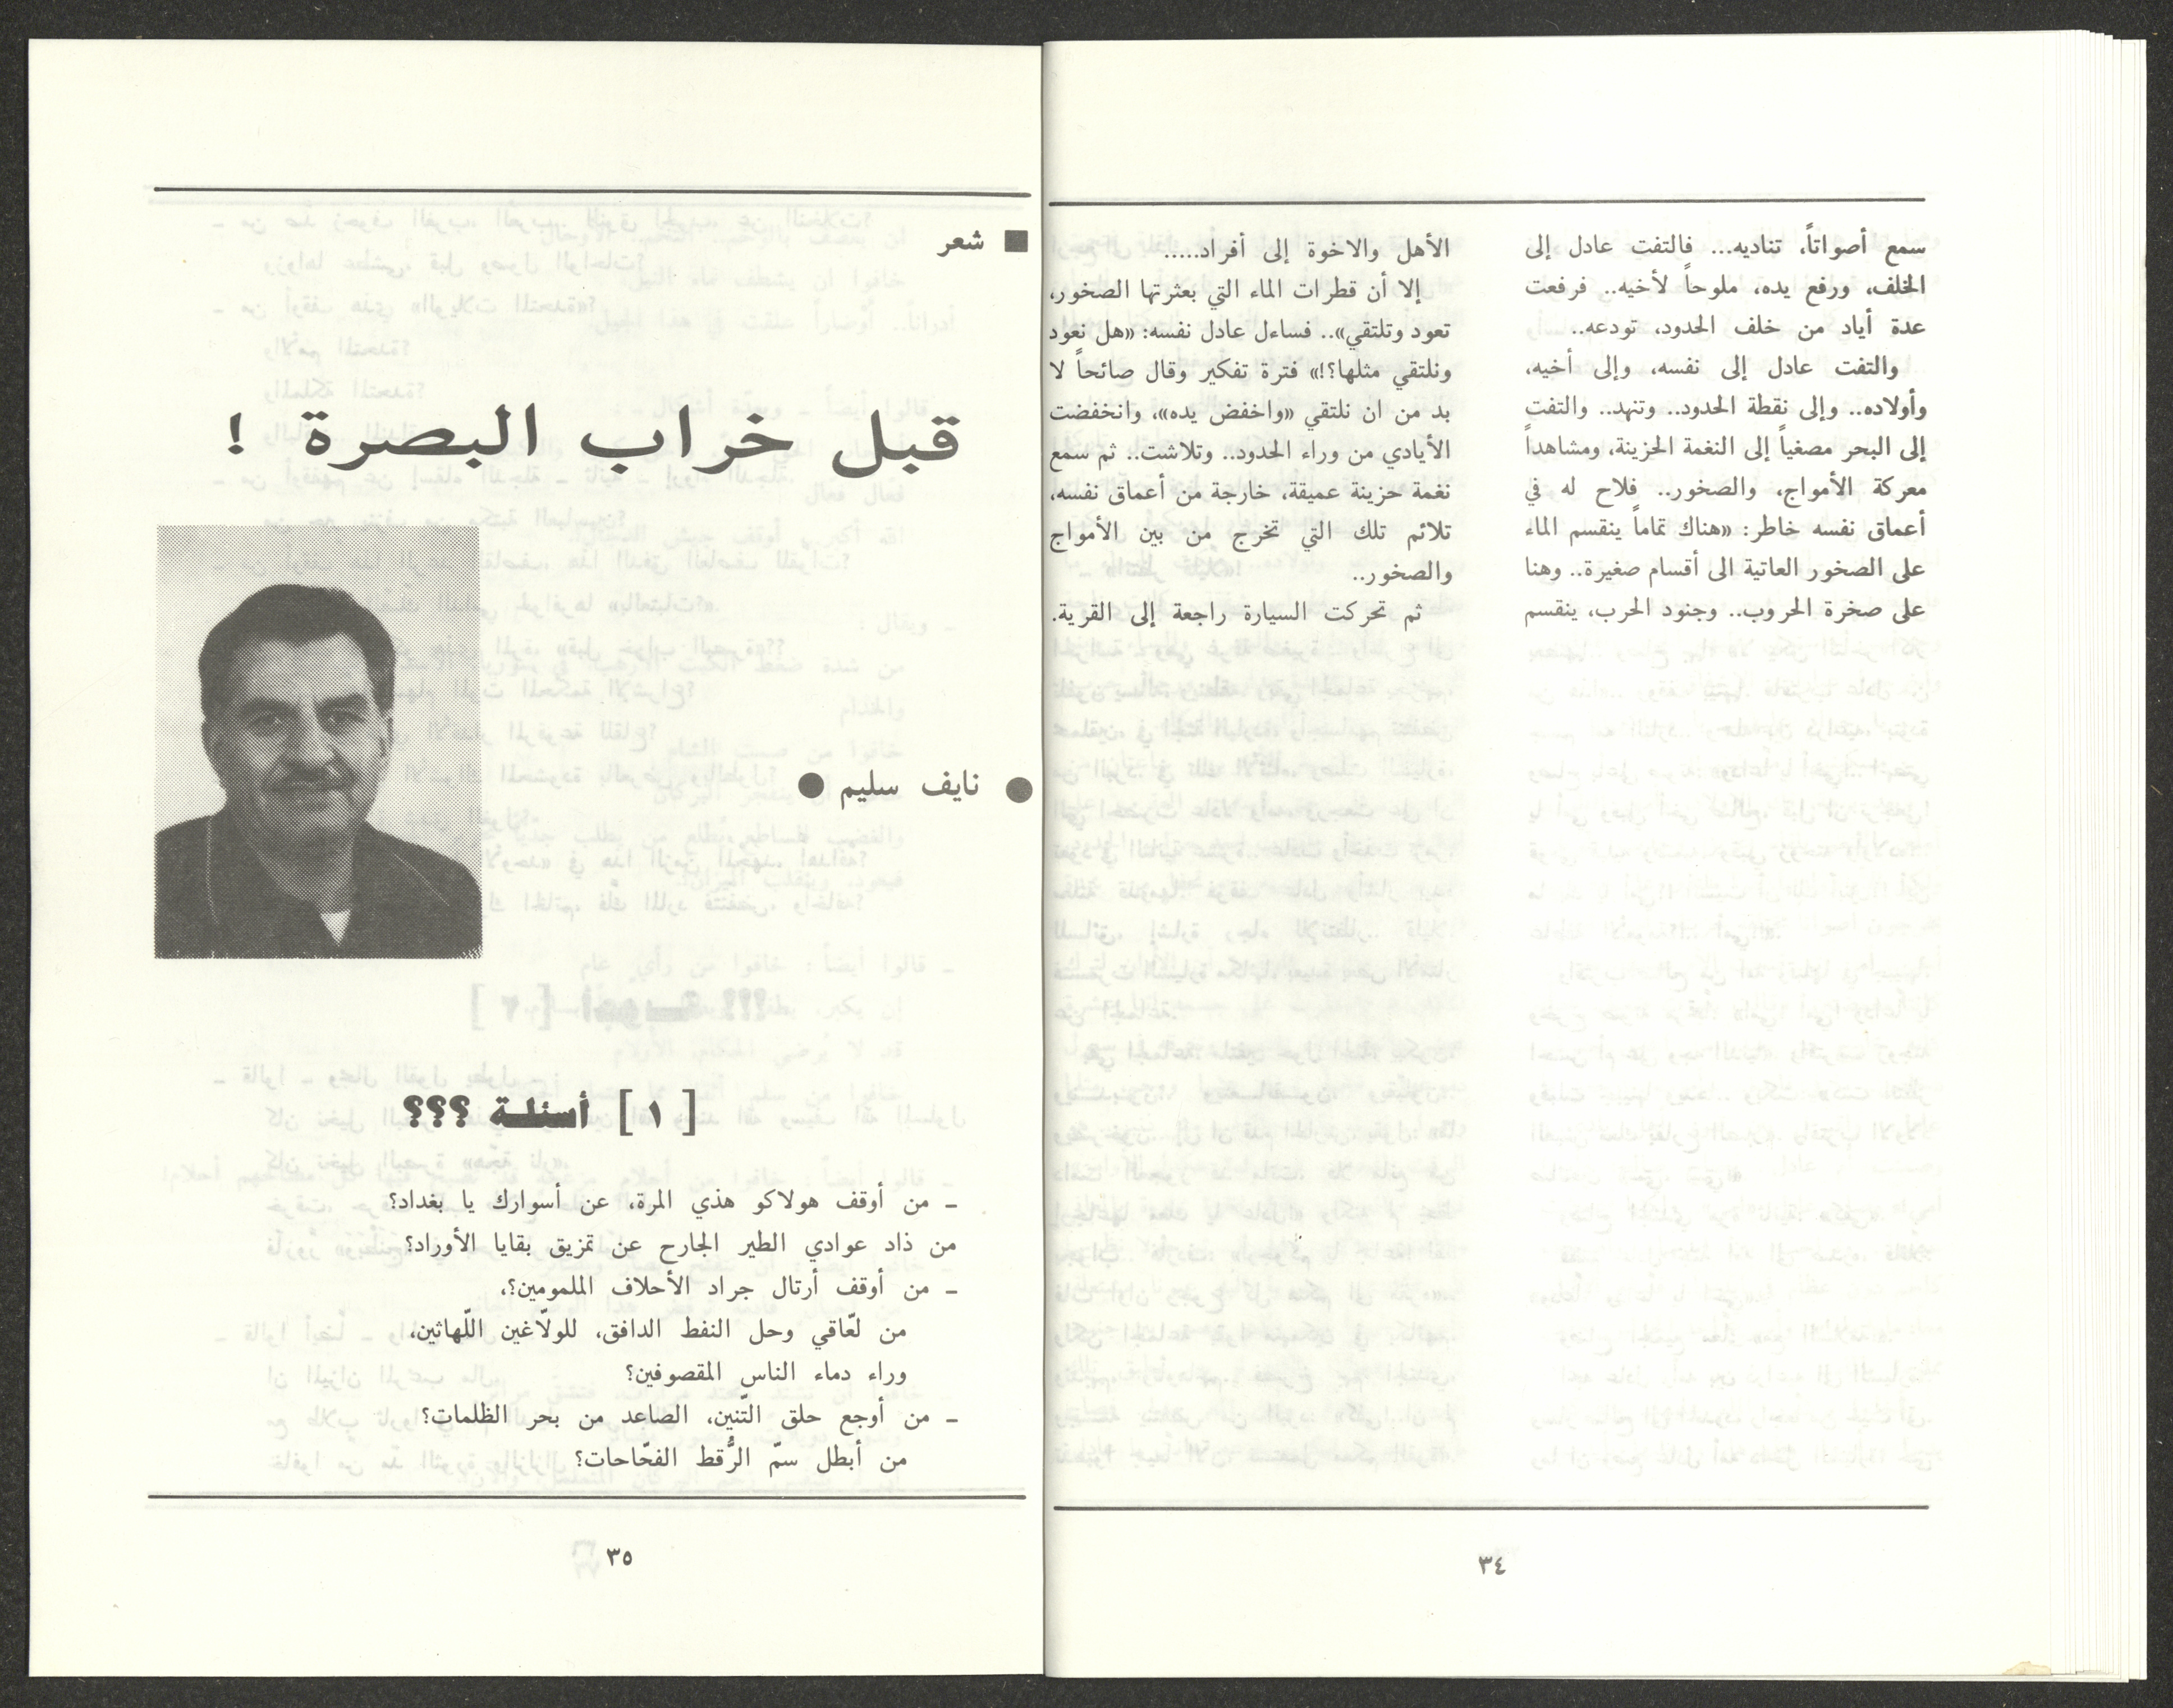 سمع أصواتاً، تناديه... فالتفت عادل إلى
الخلف، ورفع يده، ملوحاً لأخيه.. فرفعت
عدة أياد من خلف الحدود، تودعه..
والتفت عادل إلى نفسه، وإلى أخيه،
وأولاده.. وإلى نقطة الحدود.. وتنهد.. والتفت
إلى البحر مصغياً إلى النغمة الحزينة، ومشاهداً
معركة الأمواج، والصخور.. فلاح له في
أعماق نفسه خاطر: «هناك تماماً ينقسم الماء
على الصخور العاتية الى أقسام صغيرة.. وهنا
على صخرة الحروب.. وجنود الحرب، ينقسم
الأهل والاخوة إلى أفراد.....
إلا أن قطرات الماء التي بعثرتها الصخور،
تعود وتلتقي».. فساءل عادل نفسه: «هل نعود
ونلتقي مثلها؟!» فترة تفكير وقال صائحاً لا
بد من ان نلتقي «واخفض يده»، وانخفضت
الأيادي من وراء الحدود.. وتلاشت.. ثم سمع
نغمة حزينة عميقة، خارجة من أعماق نفسه،
تلائم تلك التي تخرج من بين الأمواج
والصخور..
ثم تحركت السيارة راجعة إلى القرية.
٣٤
■ شعر
قبل خراب البصرة !
● نايف سليم ●
[ ١ ] أسئلة ؟؟؟
ـ من أوقف هولاكو هذي المرة، عن أسوارك يا بغداد؟
من ذاد عوادي الطير الجارح عن تمزيق بقايا الأوراد؟
ـ من أوقف أرتال جراد الأحلاف الملمومين؟،
من لعّاقي وحل النفط الدافق، للولاّغين اللّهاثين،
وراء دماء الناس المقصوفين؟
ـ من أوجع حلق التّنين، الصاعد من بحر الظلمات؟
من أبطل سمّ الرُّقط الفحّاحات؟
٣٥